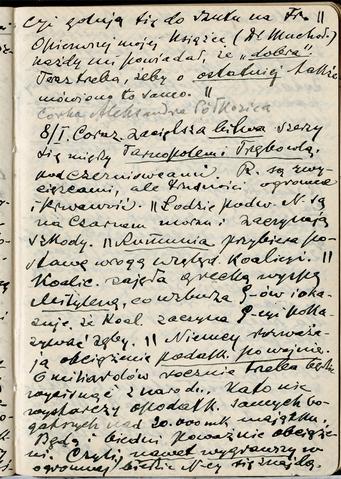 cy i gotują się do szutu na Fr. ||
O pierwszej mojej książce (Al. Much.)
każdy mi powiadał, że „dobra“.
Teraz trzeba, żeby o ostatniej także
mówiono to samo. ||
Córka Aleksandra Półkozica
8/I. Coraz zacięlsza bitwa szerzy
się między Tarnopolem i Trębowlą,
pod Czerniowcami. R. są zwy-
cięzcami, ale trudności ogromne
i krwawość. || Łodzie podw. N. są
na Czarnem morzu i zaczynają
szkody. || Rumunia przybiera po-
stawę wrogą względ. Koalicyi. ||
Koalic. zajęła grecką wyspę
Mitylenę, co wzburza G-ów i oka-
zuje, że Koal. zaczyna G-cyi poka-
zywać zęby. || Niemcy rozważa-
ją obciążenie podatk. po wojnie.
6 miliardów rocznie trzeba będzie
wycisnąć z narodu. Na to nie
wystarczy opodatk. samych bo-
gatszych nad 20.000 mk majątku.
Będą i biedni poważnie obciąże-
ni. Czyli nawet wygrawszy w
ogromnej biedzie N-cy się znajdą.